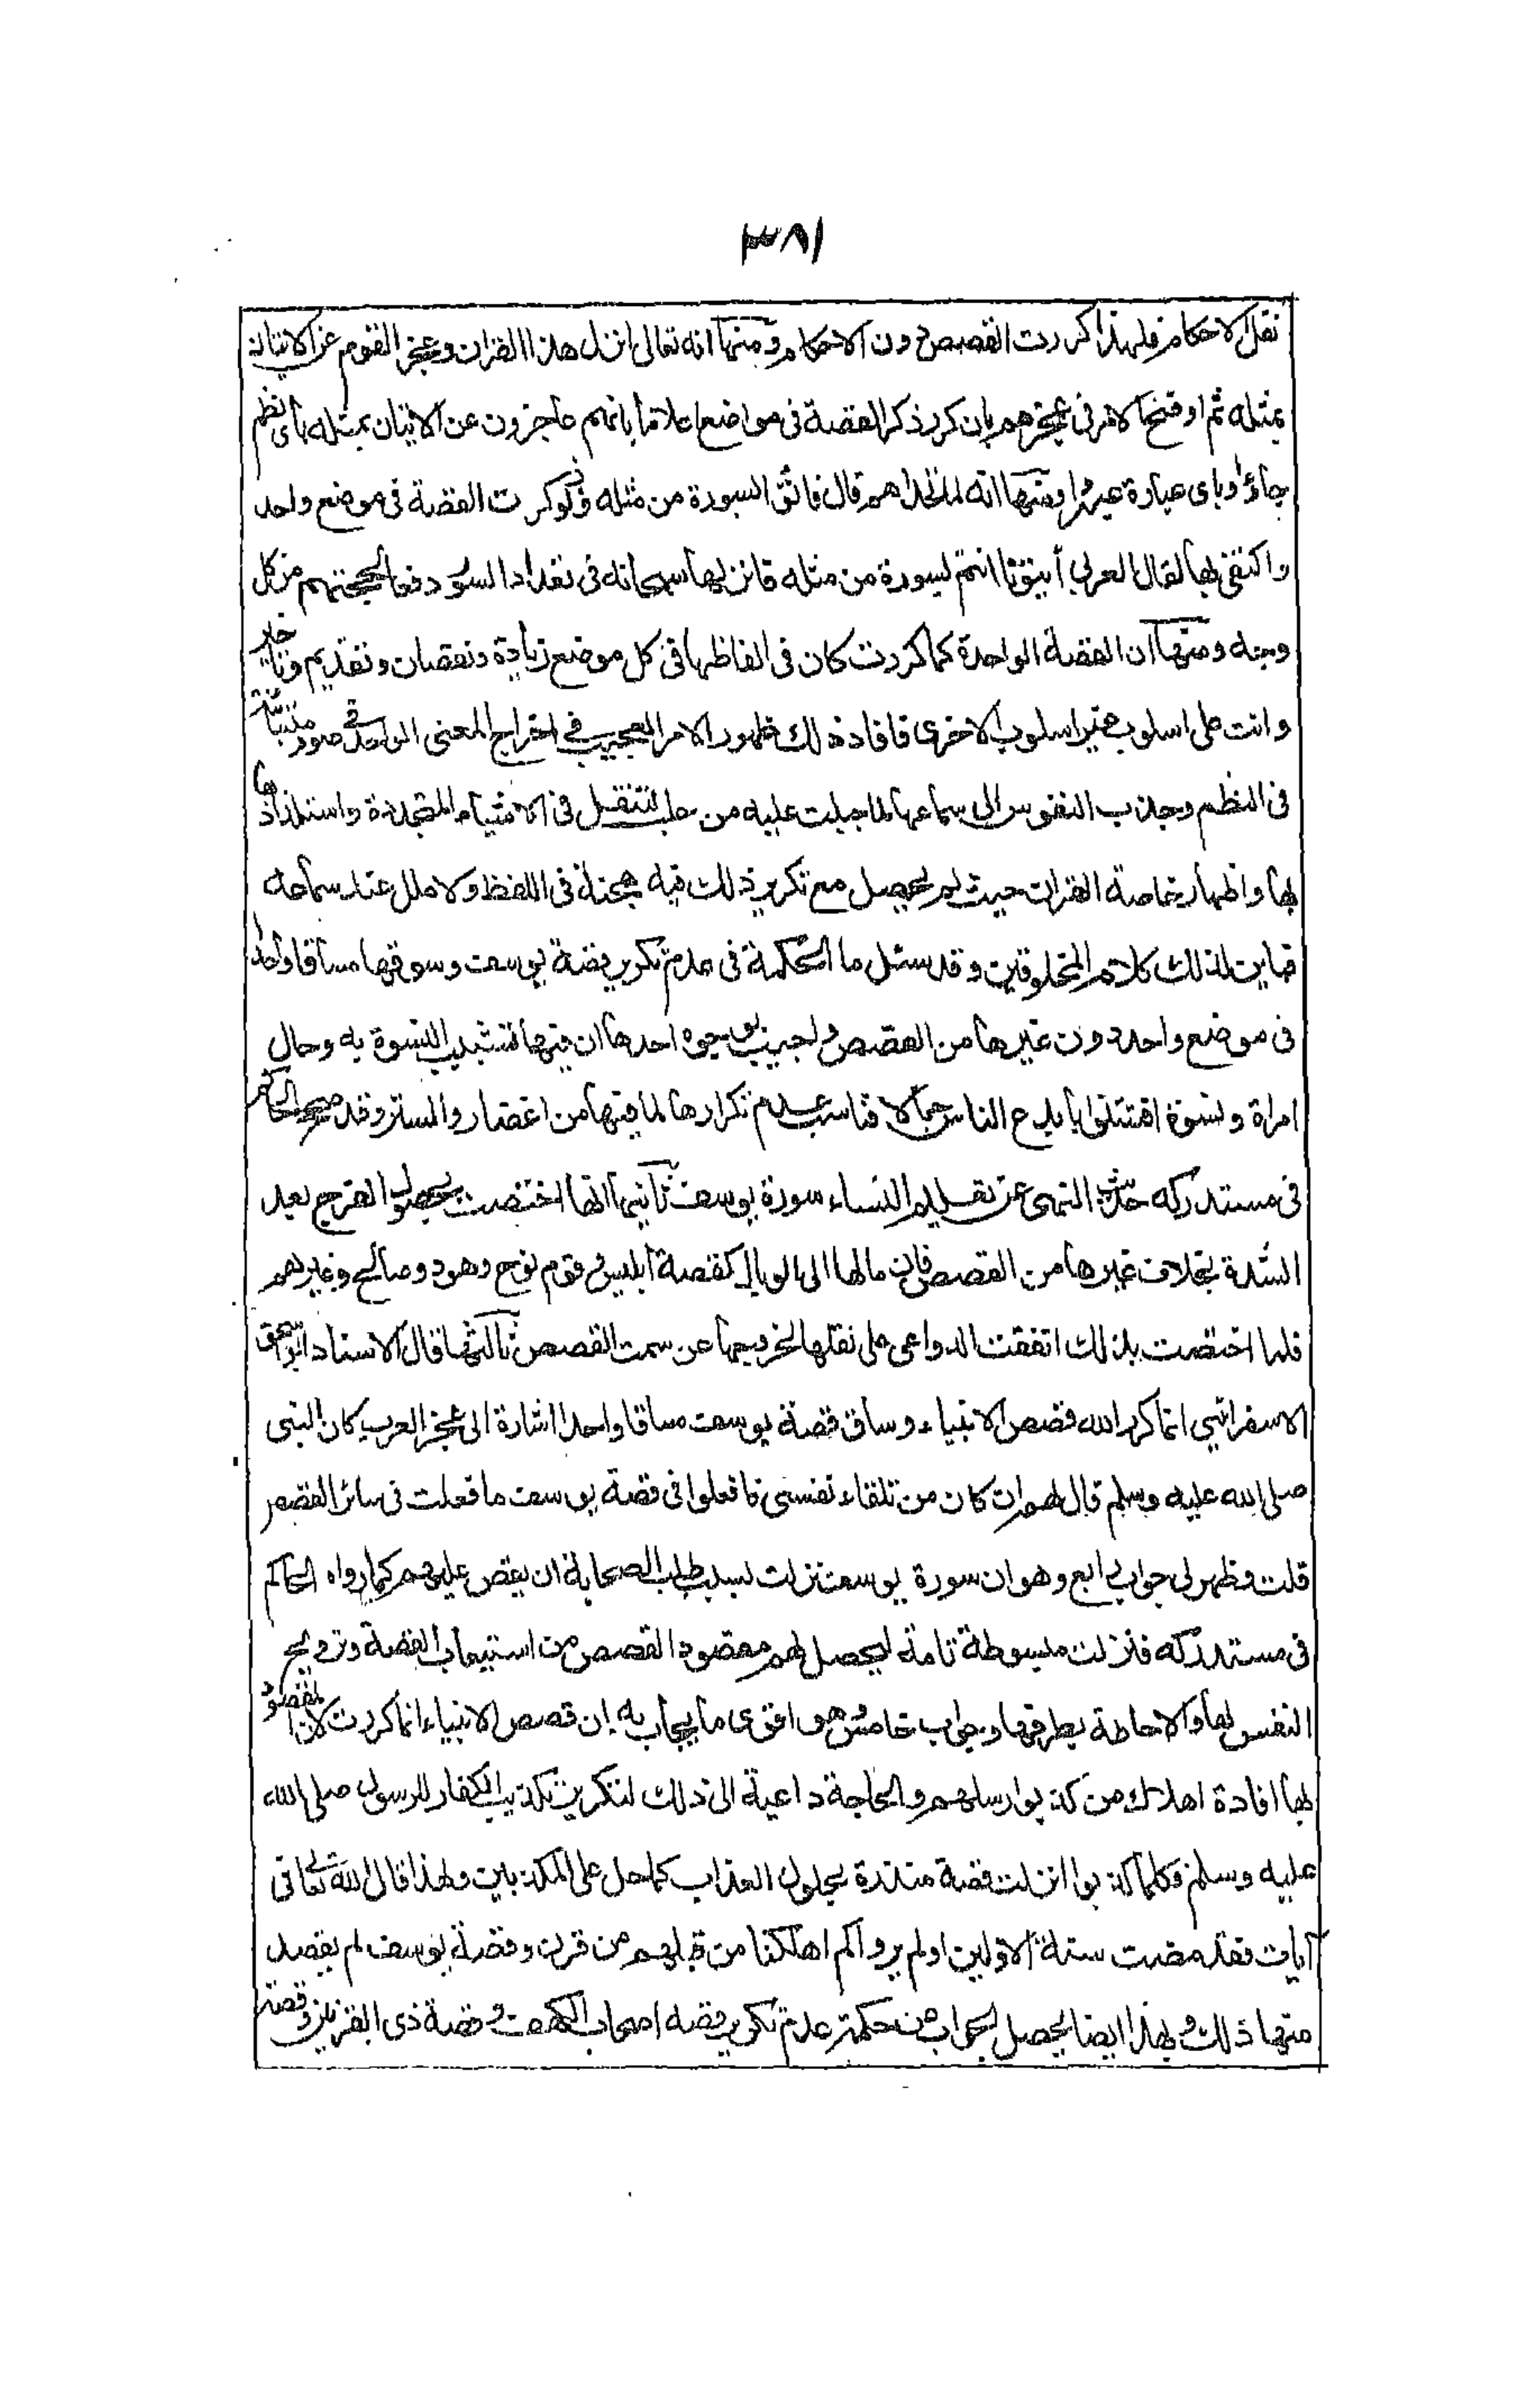 ٣٨١
نقل الاحكام فلهذا كررت القصص دون الاحكام ومنها انه تعالى انزل هذا القران وعجز القوم عن الاتيان
بمثله ثم اوضح الامر فى عجزهم بان كرر ذكر القصة فى مواضع اعلاما بانهم عاجزون عن الاتيان بمثله باى نظم
جاؤا وباى عبارة عبروا ومنها انه لما تحداهم قال فاتوا بسورة من مثله فلو ذكرت القصة فى موضع واحد
واكتفى بها لقال العربى أيتونا انتم بسورة من مثله فانزلها سبحانه فى تعداد السور دفعا لحجتهم من كل
وجه ومنها ان القصة الواحدة كما كررت كان فى الفاظها فى كل موضع زيادة ونقصان وتقديم وتاخير
واتت على اسلوب غير اسلوب الاخرى فافاد ذلك ظهور الامر العجيب فى اخراج المعنى الواحد فى صور متباينة
فى النظم وجذب النفوس الى سماعها لما جبلت عليه من حب التنقل فى الاشياء المتجددة واستلذاذها
بها واظهار خاصة القران حيث لم يحصل مع تكرير ذلك فيه هجنة فى اللفظ ولا ملل عند سماعه
فباين لذلك كلام المخلوقين وقد سئل ما الحكمة فى عدم تكرير قصة يوسف وسوقها مساقا واحدا
فى موضع واحد دون غيرها من القصص واجيب بوجوه احدها ان فيها تشبيب النسوة به وحال
امراة ونسوة افتتنوا بابدع الناس جمالا فناسب عدم تكرارها لما فيها من اغضاء والستر وقد صحح الحاكم
فى مستدركه حديث النهى عن تعليم النساء سورة يوسف ثانيها انها اختصت بحصول الفرج بعد
الشدة بخلاف غيرها من القصص فان مالها الى الوبال كقصة ابليس وقوم نوح وهود وصالح وغيرهم
فلما اختصت بذلك اتفقت الدواعى على نقلها لخروجها عن سمت القصص ثالثها قال الاستاد ابو اسحق
الاسفرائنى انما كرر الله قصص الانبياء وساق قصة يوسف مساقا واحدا اشارة الى عجز العرب كان النبى
صلى الله عليه وسلم قال لهم ان كان من تلقاء نفسى فافعلوا فى قصة يوسف ما فعلت فى سائر القصص
قلت وظهر لى جواب رابع وهو ان سورة يوسف نزلت بسبب طلب الصحابة ان يقص عليهم كما رواه الحاكم
فى مستدركه فنزلت مبسوطة تامة ليحصل لهم مقصود القصص من استيعاب القصة وترويح
النفس بها والاحاطة بطرفيها وجواب خامس وهو اقوى ما يجاب به إن قصص الانبياء انما كررت لان المقصود
بها افادة اهلاك من كذبوا رسلهم والحاجة داعية الى ذلك لتكرير تكذيب الكفار للرسول صلى الله
عليه وسلم فكلما كذبوا انزلت قصة منذرة بحلول العذاب كما حل على المكذبين ولهذا قال الله تعالى فى
آيات فقد مضت سنة الاولين اولم يروا كم اهلكنا من قبلهم من قرن وقصة يوسف لم يقصد
منها ذلك وبهذا ايضا يحصل الجواب عن حكمة عدم تكرير قصة اصحاب الكهف وقصة ذى القرنين وقصة